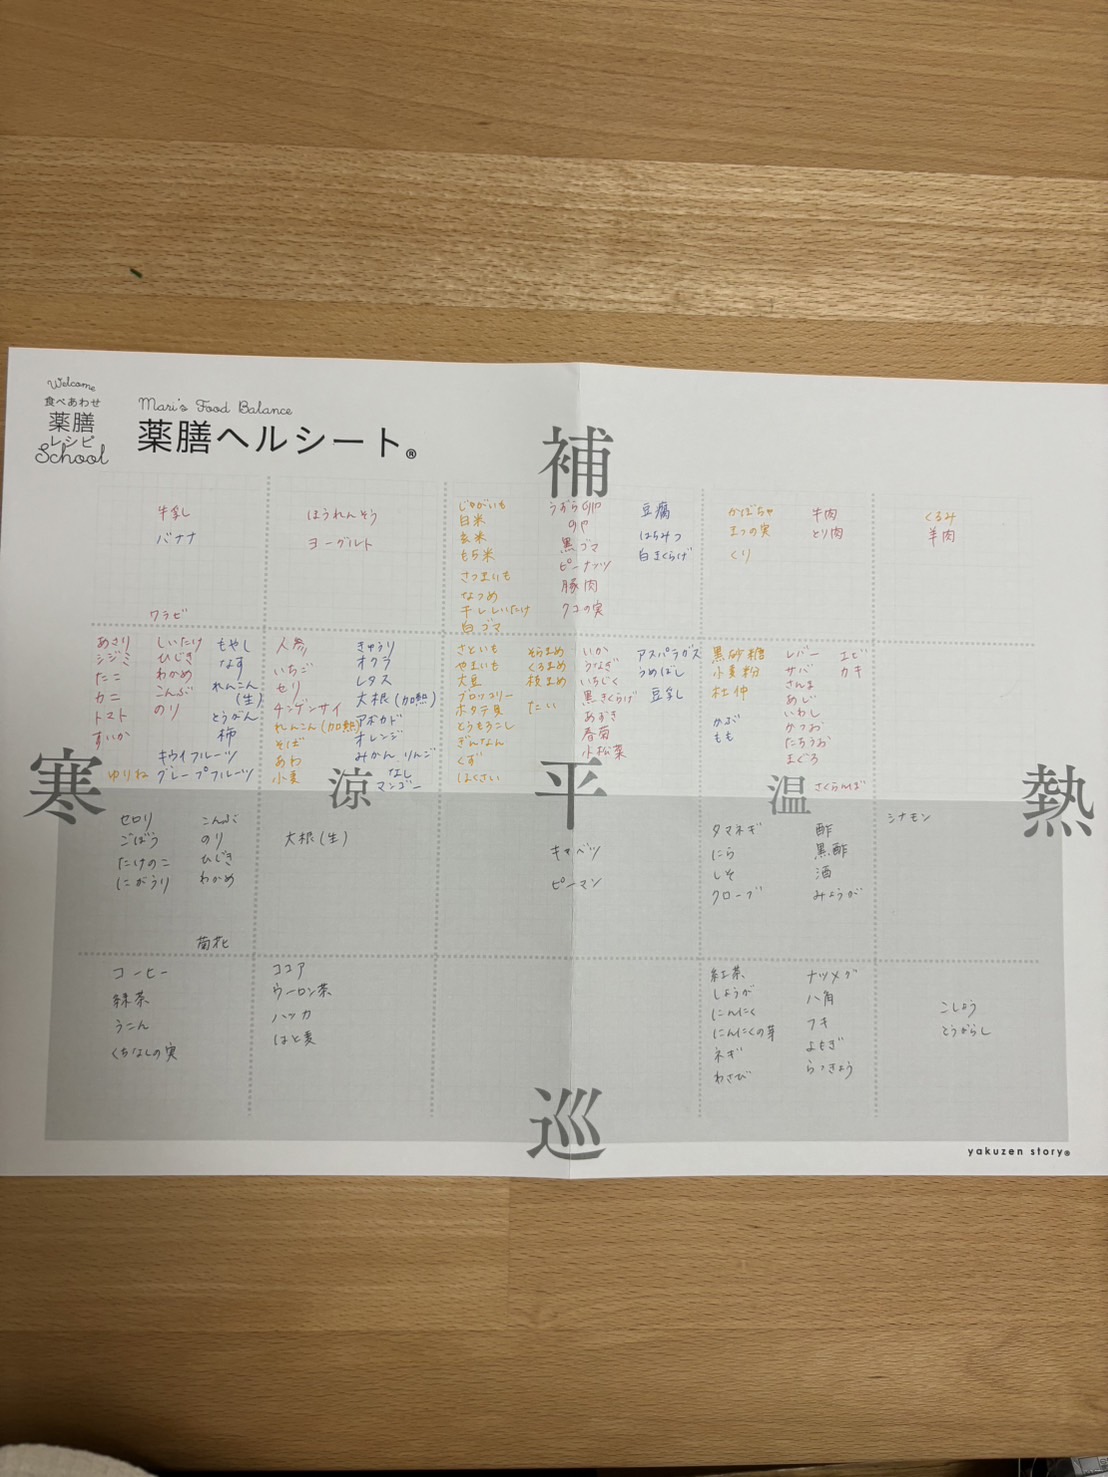 Welcome
食べあわせ
薬膳
レシピ
School
Mari's Food Balance
薬膳ヘルシート®
補
牛乳
バナナ
ワラビ
ほうれんそう
ヨーグルト
じゃがいも
白米
玄米
もち米
さつまいも
なつめ
干ししいたけ
白ゴマ
黒ゴマ
ピーナッツ
豚肉
クコの実
豆腐
はちみつ
白きくらげ
かぼちゃ
まつの実
くり
牛肉
とり肉
くるみ
羊肉
あさり
シジミ
たこ
カニ
トマト
すいか
しいたけ
ひじき
わかめ
こんぶ
のり
もやし
なす
れんこん
(生)
とうがん
柿
キウイフルーツ
ゆりね
グレープフルーツ
人参
いちご
セリ
チンゲンサイ
れんこん(加熱)
そば
あわ
小麦
きゅうり
オクラ
レタス
大根(加熱)
アボカド
オレンジ
みかん りんご
なし
マンゴー
さといも
やまいも
大豆
ブロッコリー
ホタテ貝
とうもろこし
ぎんなん
くず
はくさい
そらまめ
くろまめ
枝まめ
たい
いか
うなぎ
いちじく
黒きくらげ
あずき
春菊
小松菜
アスパラガス
うめぼし
豆乳
黒砂糖
小麦粉
杜仲
かぶ
もも
レバー
サバ
さんま
あじ
いわし
かつお
たちうお
まぐろ
さくらんぼ
エビ
カキ
寒
涼
平
温
熱
セロリ
ごぼう
たけのこ
にがうり
こんぶ
のり
ひじき
わかめ
菊花
大根(生)
キャベツ
ピーマン
タマネギ
にら
しそ
クローブ
酢
黒酢
酒
みょうが
シナモン
コーヒー
緑茶
うこん
くちなしの実
ココア
ウーロン茶
ハッカ
はと麦
紅茶
しょうが
にんにく
にんにくの芽
ネギ
わさび
ナツメグ
八角
フキ
よもぎ
らっきょう
こしょう
とうがらし
巡
yakuzen story®